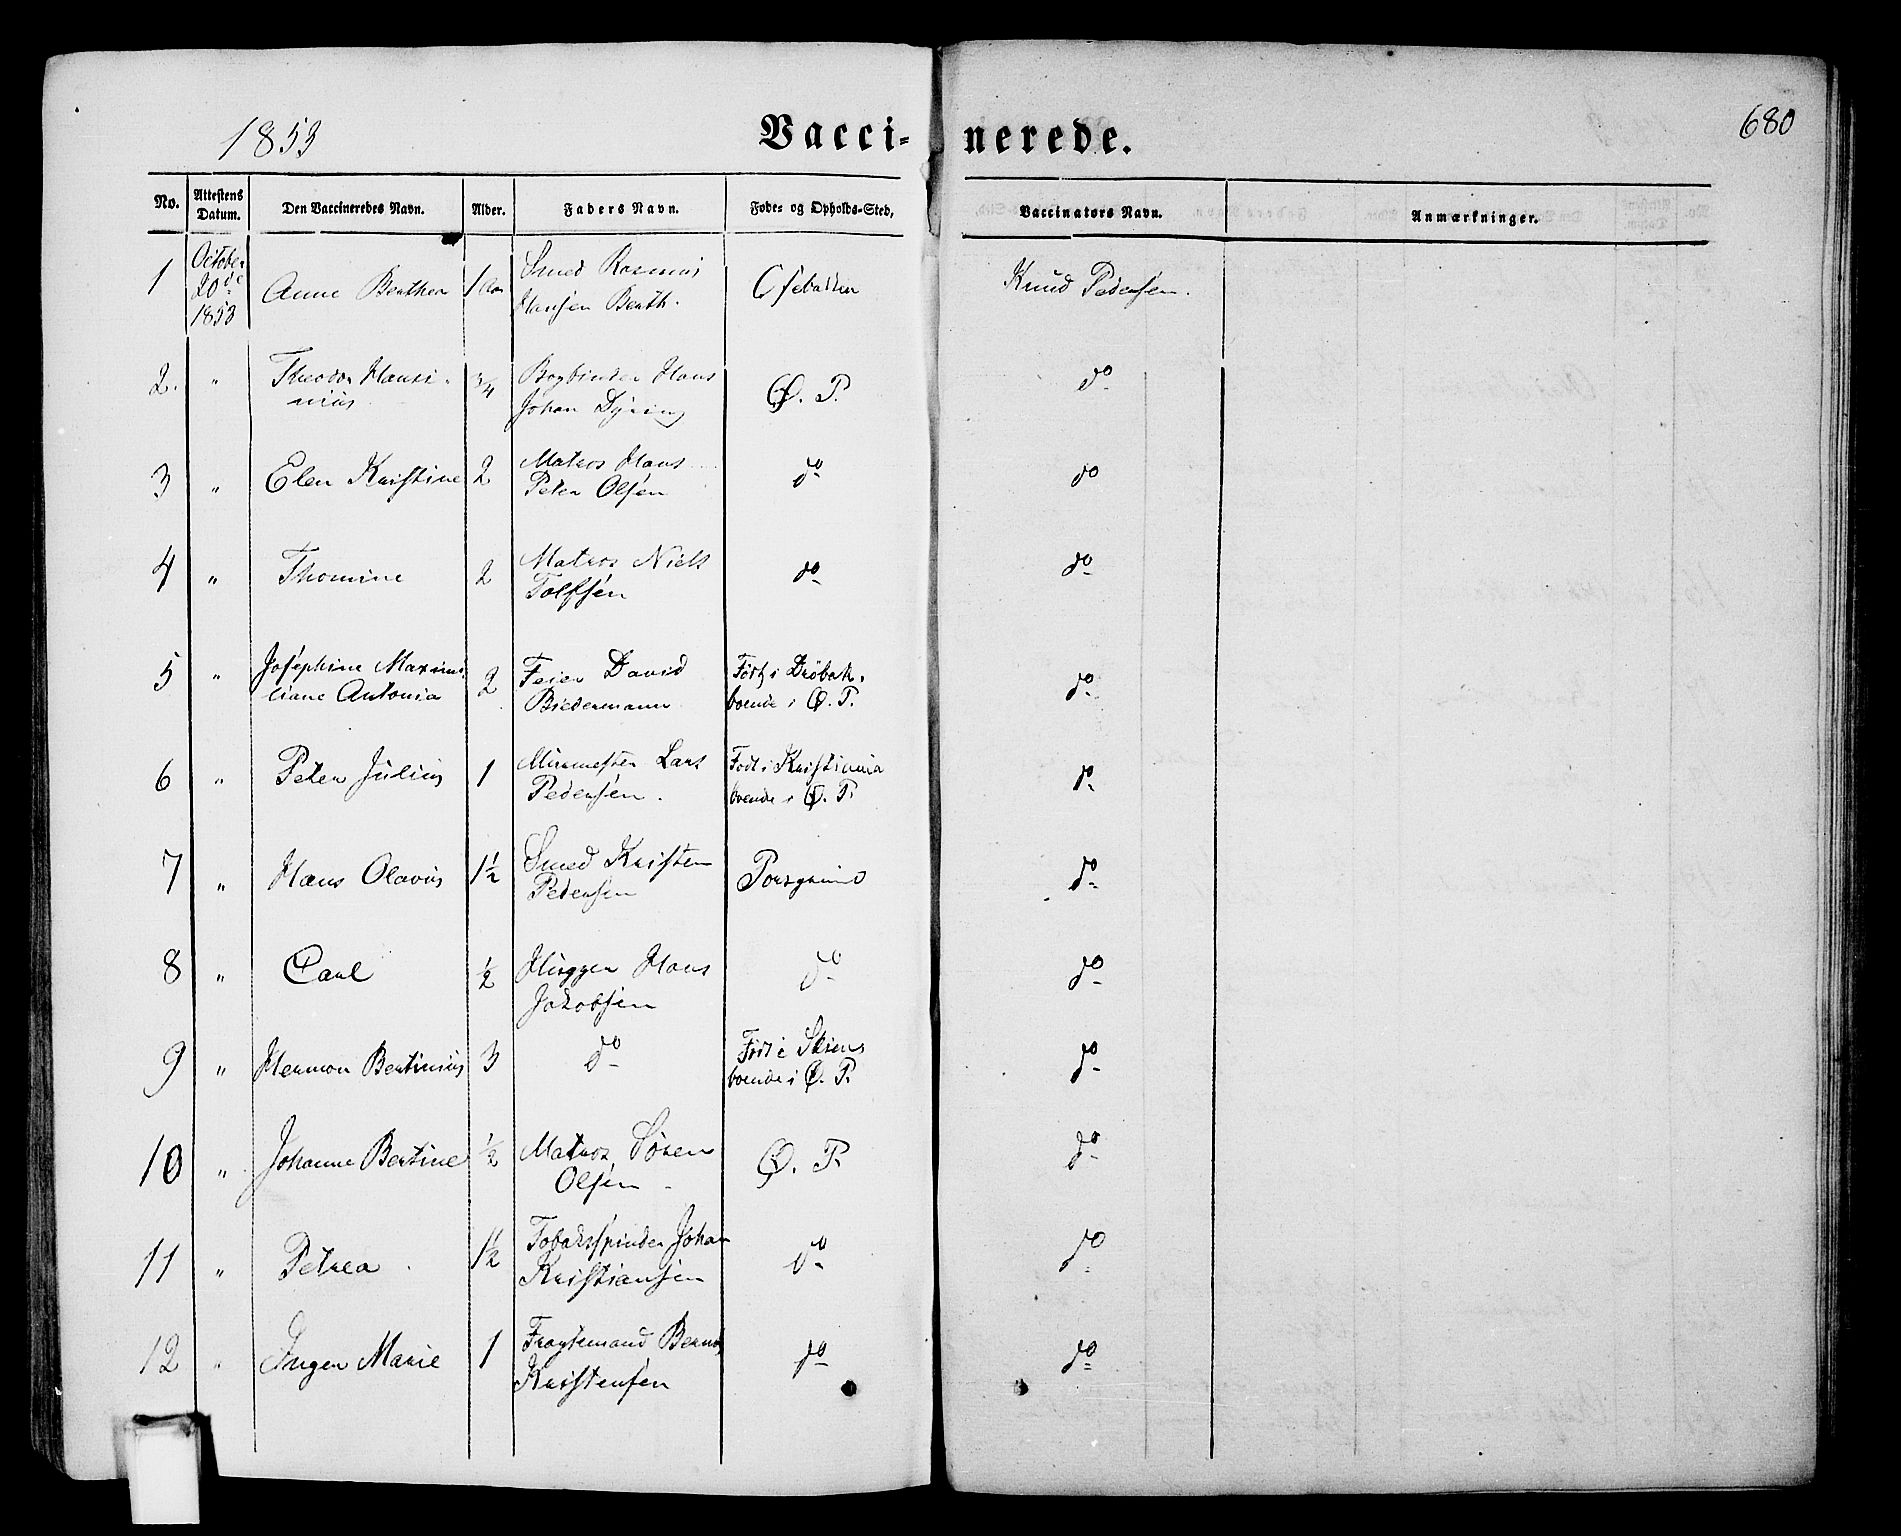 1853
Vacci-
nerede.
680
No.
Attestens Datum.
Den Vaccineredes Navn.
Alder.
Faders Navn.
Føde- og Opholds-Sted,
Vaccinators Navn.
Anmærkninger.
1 October 20de 1853 Anne 1 Aar Smed Rasmus Knud Pedersen.
Hansen
2. " Theodor Hansi- 3/4 Bogbinder Hans Ø. P. do
nius Johan Dyring
3 " Elen Kristine 2 Matros Hans do do
Peter Olsen
4 " Thomine 2 Matros Niels do do
Tolfsen
5 " Josephine Maximi 2 Feier David Født i Drøbak, do
liane Antonia Biedermann boende i Ø. P.
6 " Peter Julius 1 Lars Født i Kristiania do
Pedersen. boende i Ø. P.
7 " Hans Olavus 1 1/2 Smed Kristen Porsgrund do
Pedersen
8 " Carl 1/2 Hans do do
Jakobsen
9 " Herman Bertinius 3 do Født i Skien do
boende i Ø. P.
10 " Johanne Bertine 1/2 Matros Søren Ø. P. do
Olsen
11 " Petrea 1 1/2 Tobaksspinder Johan do do
Kristiansen
12 " Inger Marie 1 Fragtemand do do
Kristensen